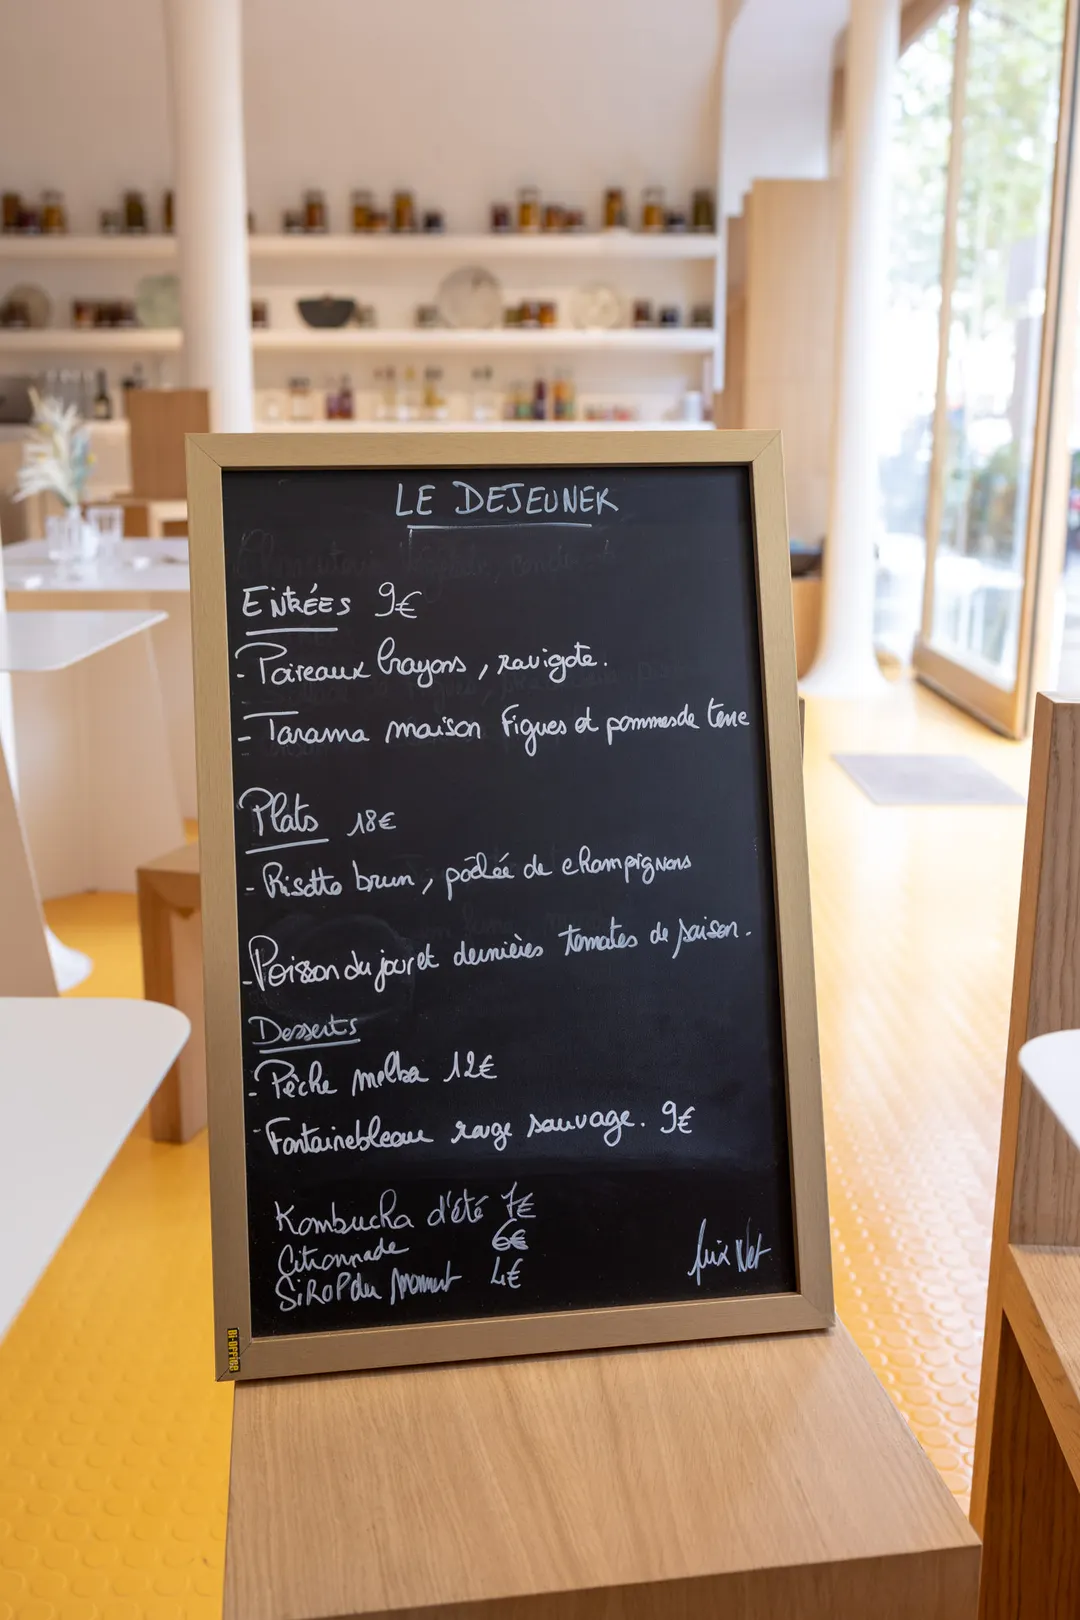 LE DEJEUNER
Entrées 9€
- Poireaux crayons, ravigote.
- Tarama maison Figues et pommes de terre
Plats 18€
- Risotto brun, poêlée de champignons
- Poisson du jour et dernières tomates de saison.
Desserts
- Pêche melba 12€
- Fontainebleau rouge sauvage. 9€
Kombucha d'été 7€
Citronnade 6€
SiROP du Moment 4€
Prix Net
BI-OFFICE